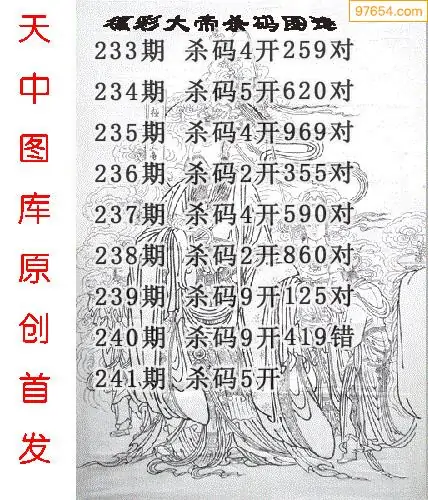 97654.com
福彩大帝杀码图谜
233期 杀码4开259对
234期 杀码5开620对
235期 杀码4开969对
236期 杀码2开355对
237期 杀码4开590对
238期 杀码2开860对
239期 杀码9开125对
240期 杀码9开419错
241期 杀码5开
天中图库原创首发